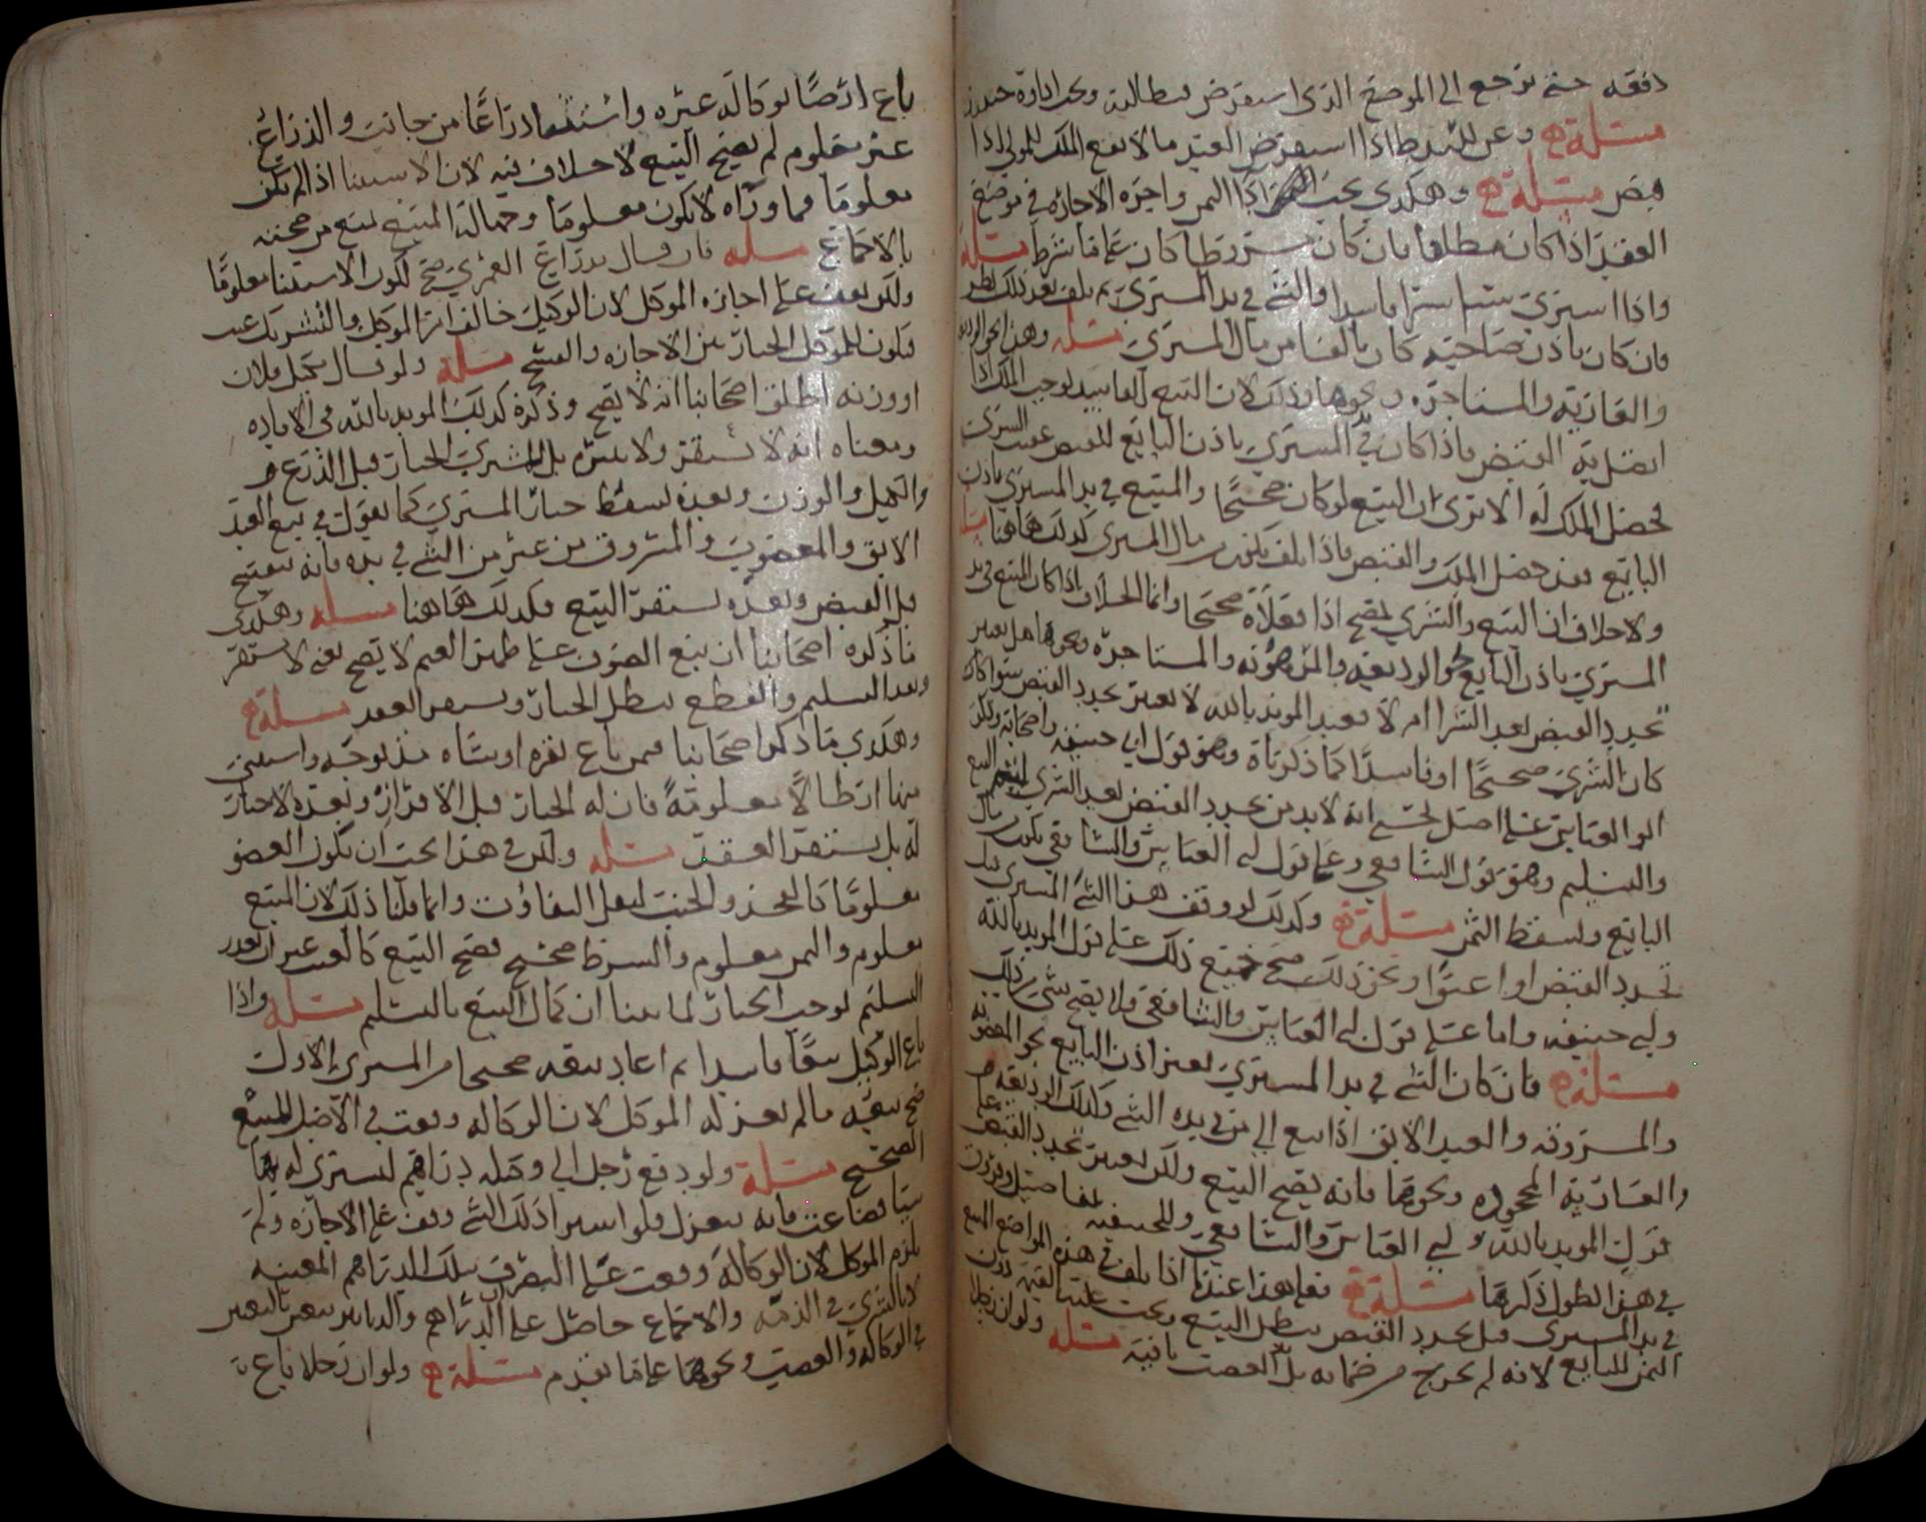 دفعه حتى يرجع الى الموضع الذي استقرض فيطالبه
مسئلة وعن اذا استقرض العبد مالا يقع الملك للمولى اذا
قبض مسئلة وهكذي يجب اذا الثمن واجره الاجازه في موضع
العقد اذا كان مطلقا فان كان مشروطا كان على ما شرط مسئلة
واذا اشترى شيا شرا فاسدا والشي في يد المشتري ثم تلف بعد ذلك نظر
فان كان باذن صاحبه كان تالفا من مال المشتري مسئله وهذا نحو الوديعة
والعارية والمستاجرة ونحوها وذلك لان البيع الفاسد يوجب الملك اذا
اتصل به القبض فاذا كان في المشتري باذن البايع القبض عقيب الشرى
فحصل الملك له الا ترى ان البيع لو كان صحيحا والمبيع في يد المشتري باذن
البايع فقد حصل الملك والقبض فاذا تلف تلف من مال المشتري كذلك هاهنا
ولا خلاف ان البيع والشري يصح اذا فعلاه صحيحا وانما الخلاف اذا كان المبيع في يد
المشتري باذن البايع نحو الوديعه والمرهونه والمستاجره ونحوها هل يعتبر
تجديد القبض بعد الشرا ام لا فعند المويد بالله لا يعتبر تجديد القبض سوا كان
كان الشرى صحيحا او فاسدا كما ذكرناه وهو قول ابي حنيفه واصحابه وذكر
ابو العباس على اصل يحيى انه لا بد من تجديد القبض بعد الشرى ليتم البيع
والتسليم وهو قول الشافعي وعلى قول ابي العباس والشافعي يكون من مال
البايع ويسقط الثمن مسئلة وكذلك لو وقف هذا الشي المشتري قبل
تجديد القبض او اعتق او نحو ذلك صح جميع ذلك على قول المويد بالله
وابي حنيفه واما على قول ابي العباس والشافعي فلا يصح شي من ذلك
مسئلة فان كان الشي في يد المشتري بغير اذن البايع نحو المغصوبة
والمسروقه والعبد الابق اذا بيع الى من في يده الشي وكذلك الوديعه
والعارية المجحوده ونحوهما فانه يصح البيع ولكن يعتبر تجديد القبض على
قول المويد بالله وابي العباس والشافعي وللحنفيه تفاصيل وفروق
في هذا يطول ذكرها مسئلة فعلى هذا عندنا اذا تلف في هذه المواضع المبيع
في يد المشتري قبل تجديد القبض بطل البيع ويجب عليه القيمة دون
الثمن للبايع لانه لم يخرج من ضمانه بل الغصب باقيه مسئله ولو ان رجلا
باع ارضا بوكالة غيره واستثنى اذراعا من جانب والذراع
غير معلوم لم يصح البيع لا خلاف فيه لان الاستثنا اذا لم يكن
معلوما فما وراه لا يكون معلوما وجهالة المبيع تمنع من صحته
بالاجماع مسله فان قال بذراع العمري صح لكون الاستثنا معلوما
ولكن يقف على اجازه الموكل لان الوكيل خالف امر الموكل والتشريك عيب
فيكون للموكل الخيار بين الاجازه والفسخ مسئلة ولو قال بكيل فلان
او وزنه اطلق اصحابنا انه لا يصح وذكره كذلك المويد بالله في الافاده
ومعناه انه لا يستقر ولا يتم بل للمشتري الخيار قبل الذرع
والكيل والوزن وبعده يسقط خيار المشتري كما يقول في بيع العبد
الابق والمغصوب والمسروق من غير من الشي في يده فانه يصح
قبل القبض وبعده يستقر البيع فكذلك هاهنا مسله وهكذي
ما ذكره اصحابنا ان بيع الصوف على ظهر الغنم لا يصح يعني لا يستقر
وبعد التسليم والقطع يبطل الخيار ويستقر العقد مسئلة
وهكذي ما ذكر اصحابنا فيمن باع بقره او شاه مذبوحة واستثنى
منها ارطالا معلومة فان له الخيار قبل الافراز وبعده لا خيار
له بل يستقر العقد مسئله ولكن في هذا يجب ان يكون العضو
معلوما كالفخذ والجنب ليقل التفاوت وانما قلنا ذلك لان المبيع
معلوم والثمن معلوم والشرط صحيح فصح البيع كالعبد غير ان تعذر
التسليم يوجب الخيار لما بينا ان كمال البيع بالتسليم مسئلة واذا
باع الوكيل بيعا فاسدا ثم اعاد بيعه صحيحا من المشتري الاول
صح بيعه مالم يعزله الموكل لان الوكالة وقعت في الاصل للبيع
الصحيح مسئلة ولو دفع رجل الى وكيله دراهم ليشتري له بها
شيا فضاعت فانه ينعزل فلو اشترا ذلك الشي وقف على الاجازه ولم
يلزم الموكل لان الوكالة وقعت على التصرف بتلك الدراهم المعينه
لا بالشرى في الذمه والاجماع حاصل على ان الدراهم والدنانير تتعين بالتعيين
في الوكاله والغصب ونحوهما على ما تقدم مسئلة ولو ان رجلا باع